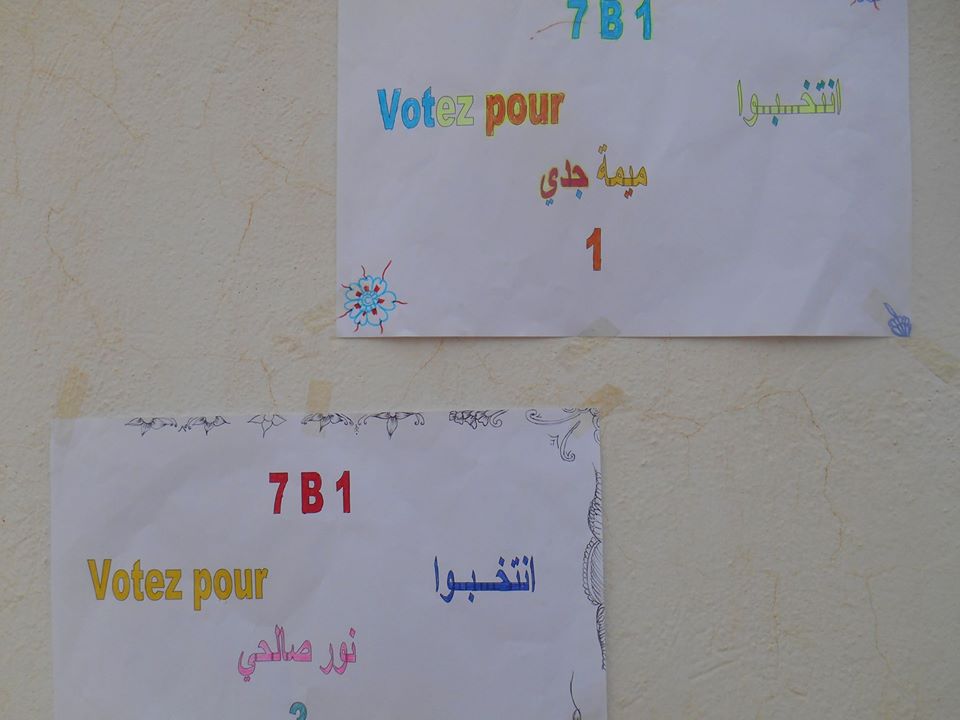 7 B 1
Votez pour انتخـــبــوا
ميمة جدي
1
7 B 1
Votez pour انتخـــبــوا
نور صالحي